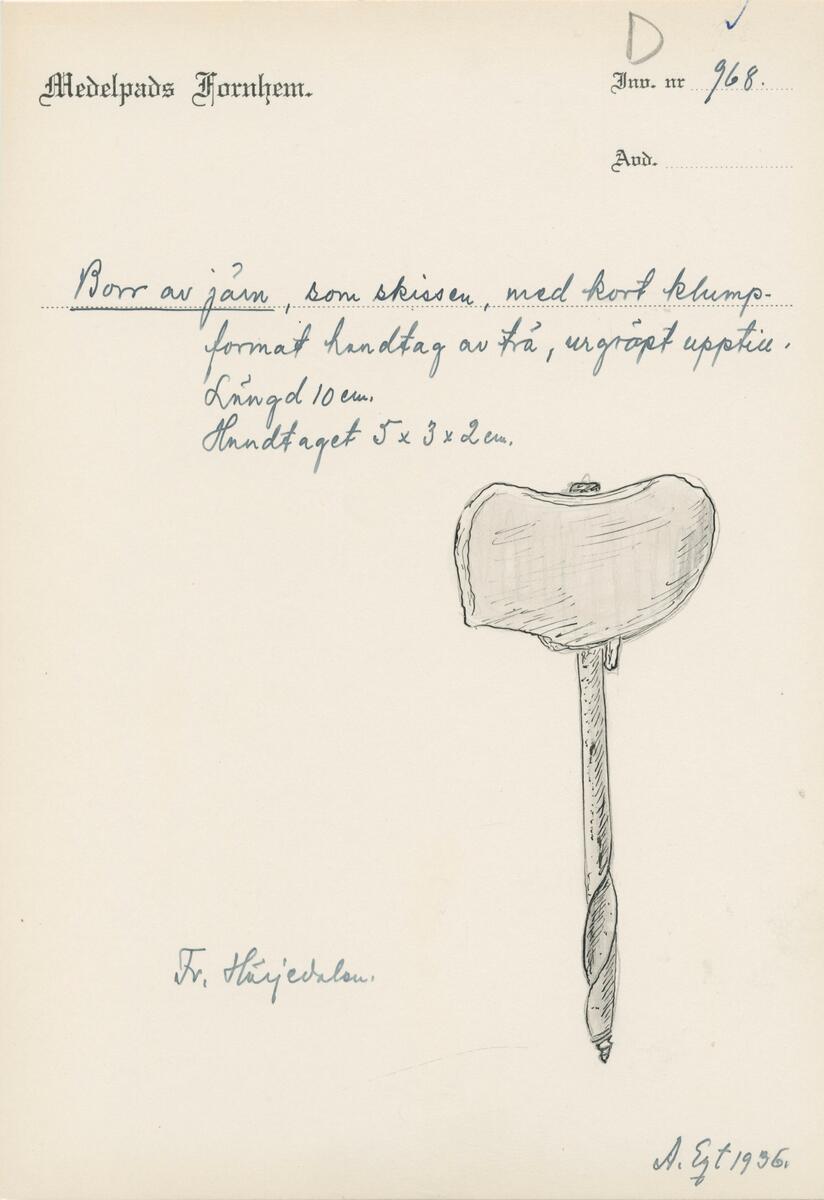 D
Medelpads Fornhem.
Inv. nr 968.
Avd.
Borr av järn, som skissen, med kort klump-
format handtag av trä, urgröpt upptill.
Längd 10 cm.
Handtaget 5 x 3 x 2 cm.
Fr. Härjedalen.
A. Egt 1936.